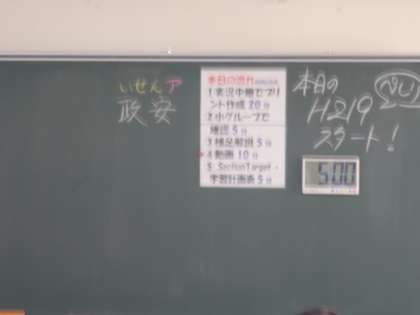 いせんア
政安
本日の流れ
1 実況中継でプリ
ント作成 20分
2 小グループで
確認 5分
3 補足解説 5分
4 動画 10分
5 SectionTarget・
学習計画表 5分
本日の
スタート！
5:00